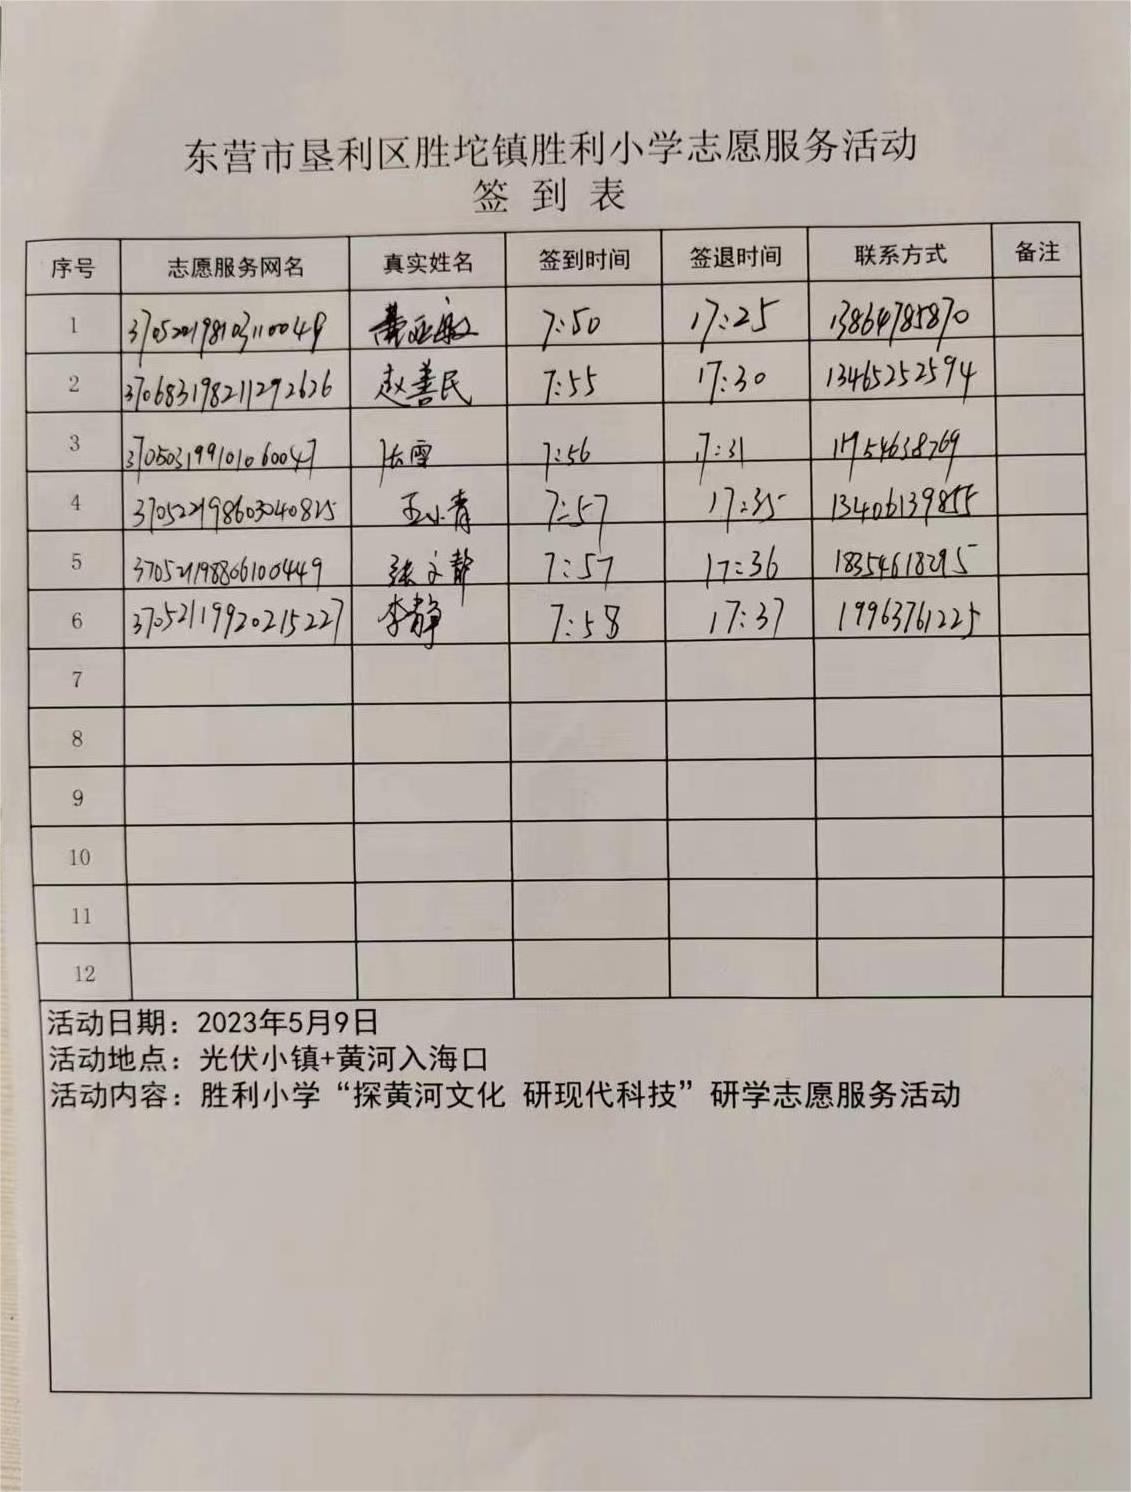 东营市垦利区胜坨镇胜利小学志愿服务活动
签 到 表
序号 志愿服务网名 真实姓名 签到时间 签退时间 联系方式 备注
1 7:50 17:25 13864785870
2 370683198211292626 赵善民 7:55 17:30 13465252594
3 370503199101060047 张雪 7:56 17:31 17754638769
4 370522198603040825 王小青 7:57 17:35 13406139855
5 370521198806100449 张文静 7:57 17:36 18354618295
6 37052119920215227 李静 7:58 17:37 19963761225
7
8
9
10
11
12
活动日期：2023年5月9日
活动地点：光伏小镇+黄河入海口
活动内容：胜利小学“探黄河文化 研现代科技”研学志愿服务活动